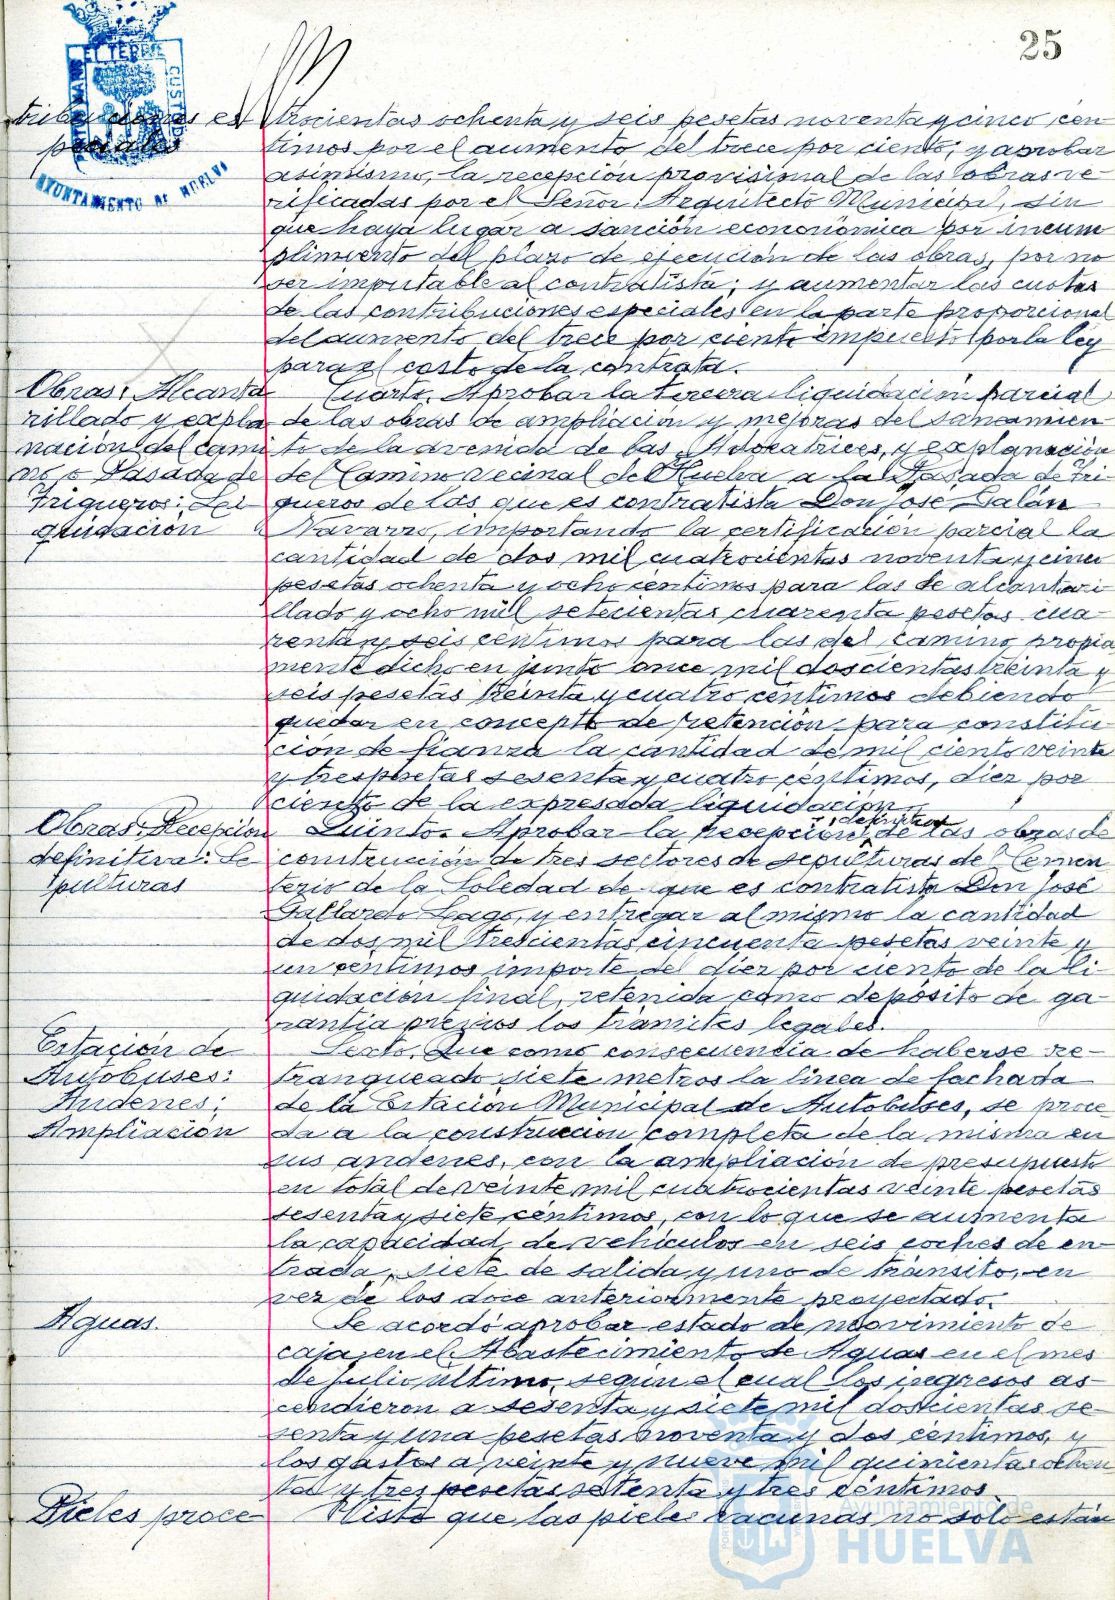 25
PORTUS MARIS ET TERRE CUSTODIA
AYUNTAMIENTO DE HUELVA
tribuciones es
peciales
trocientas ochenta y seis pesetas noventa y cinco cén-
timos por el aumento del trece por ciento; y aprobar
asimismo, la recepción provisional de las obras ve-
rificadas por el Señor Arquitecto Municipal, sin
que haya lugar a sanción econonómica por incum
plimiento del plazo de ejecución de las obras, por no
ser imputable al contratista; y aumentar las cuotas
de las contribuciones especiales en la parte proporcional
del aumento del trece por ciento impuesto por la ley
para el costo de la contrata.
Obras: Alcanta
rillado y expla
nación del cami
no o Pasada de
Trigueros: Li
quidación
Cuarto. Aprobar la tercera liquidación parcial
de las obras de ampliación y mejoras del saneamien-
to de la avenida de las Adoratrices, y explanación
del Camino vecinal de Huelva a la Pasada de Tri-
gueros de las que es contratista Don José Galán
Navarro, importando la certificación parcial la
cantidad de dos mil cuatrocientas noventa y cinco
pesetas ochenta y ocho céntimos para las de alcantari-
llado y ocho mil setecientas cuarenta pesetas cua-
renta y seis céntimos para las del camino propia
mente dicho en junto once mil doscientas treinta y
seis pesetas treinta y cuatro céntimos debiendo
quedar en concepto de retención para constitu-
ción de fianza la cantidad de mil ciento veinte
y tres pesetas sesenta y cuatro céntimos, diez por
ciento de la expresada liquidación.
Obras: Recepción
definitiva: Se
pulturas
Quinto. Aprobar la recepción definitiva de las obras de
construcción de tres sectores de sepulturas del Cemen-
terio de la Soledad de que es contratista Don José
Gallardo Lago, y entregar al mismo la cantidad
de dos mil trescientas cincuenta pesetas veinte y
un céntimos importe del diez por ciento de la li-
quidación final, retenida como depósito de ga-
rantía previos los trámites legales.
Estación de
Autobuses:
Andenes;
Ampliación
Sexto. Que como consecuencia de haberse re-
tranqueado siete metros la línea de fachada
de la Estación Municipal de Autobuses, se proce-
da a la construcción completa de la misma en
sus andenes, con la ampliación de presupuesto
en total de veinte mil cuatrocientas veinte pesetas
sesenta y siete céntimos, con lo que se aumenta
la capacidad de vehículos en seis coches de en-
trada, siete de salida y uno de tránsito, en
vez de los doce anteriormente proyectado.
Aguas.
Se acordó aprobar estado de movimiento de
caja en el Abastecimiento de Aguas en el mes
de julio último, según el cual los ingresos as-
cendieron a sesenta y siete mil doscientas se-
senta y una pesetas noventa y dos céntimos, y
los gastos a veinte y nueve mil quinientas ochen
ta y tres pesetas setenta y tres céntimos.
Pieles proce-
Visto que las pieles vacunas no solo están
Ayuntamiento de
HUELVA